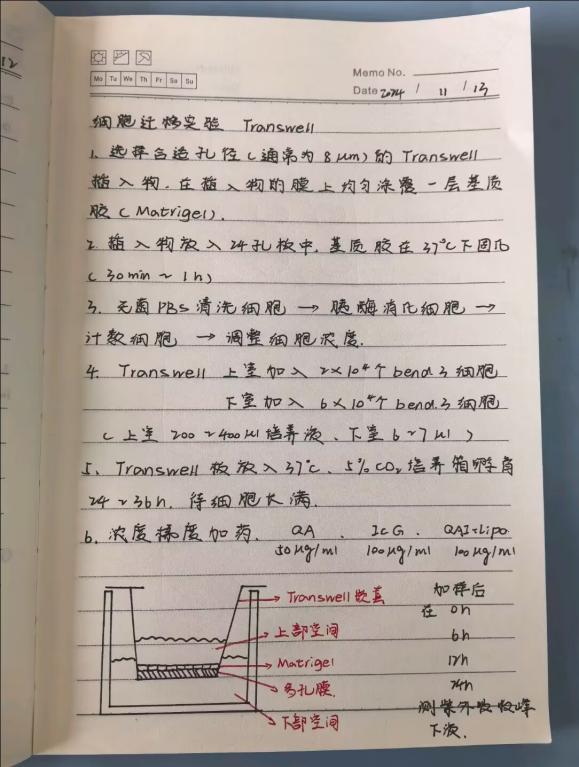 12
Mo Tu We Th Fr Sa Su
Memo No.
Date 2024 / 11 / 13
细胞迁移实验 Transwell
1. 选择合适孔径(通常为8μm)的Transwell
插入物,在插入物的膜上均匀涂覆一层基质
胶(Matrigel).
2. 插入物放入24孔板中,基质胶在37℃下固化
(30min~1h)
3. 无菌PBS清洗细胞 → 胰酶消化细胞 →
计数细胞 → 调整细胞浓度.
4. Transwell 上室加入 2×10^4个 bend.3 细胞
下室加入 6×10^4个 bend.3 细胞
(上室 200~400μl培养液、下室 6~7μl)
5. Transwell板放入37℃、5%CO2培养箱孵育
24~36h,待细胞长满.
6. 浓度梯度加药. QA 、 ICG 、 QAI-Lipo
50μg/ml 100μg/ml 100μg/ml
Transwell嵌套
上部空间
Matrigel
多孔膜
下部空间
加样后
在 0h
6h
12h
24h
测紫外吸收峰
下液.